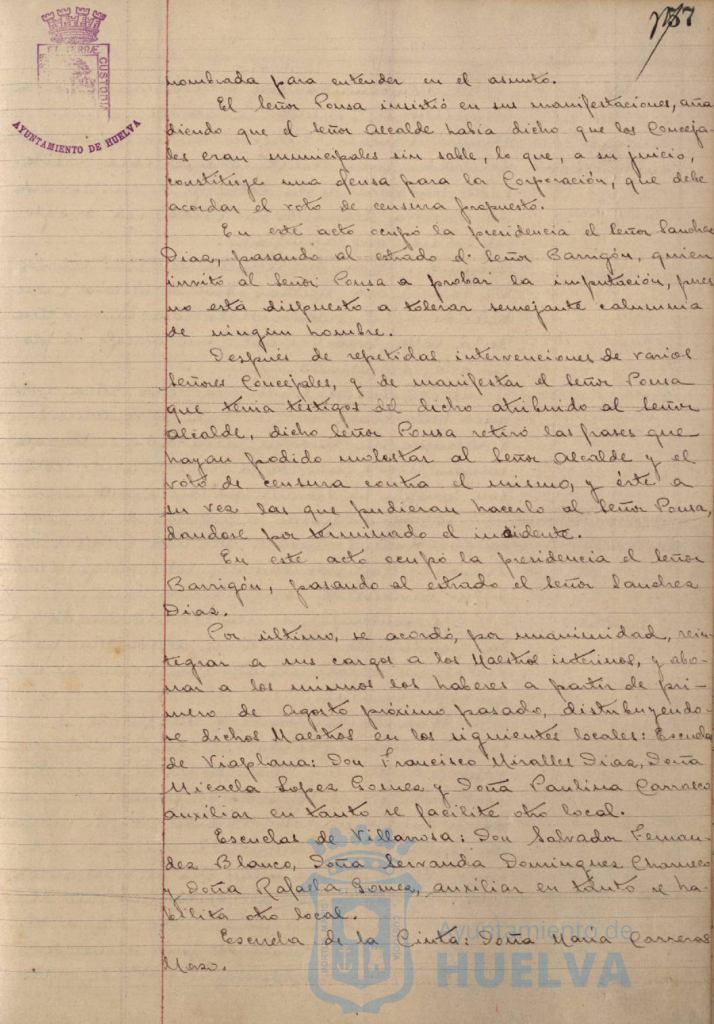 137
PORTUS MARIS ET TERRÆ CUSTODIA
AYUNTAMIENTO DE HUELVA
nombrada para entender en el asunto.
El Señor Ponsa insistió en sus manifestaciones, aña
diendo que el Señor Alcalde había dicho que los Conceja-
les eran municipales sin sable, lo que, a su juicio,
constituye una ofensa para la Corporación, que debe
acordar el voto de censura propuesto.
En este acto ocupó la presidencia el Señor Sanchez
Diaz, pasando al estrado el Señor Barrigón, quien
invitó al Señor Ponsa a probar la imputación, pues
no está dispuesto a tolerar semejante calumnia
de ningun hombre.
Después de repetidas intervenciones de varios
Señores Concejales, y de manifestar el Señor Ponsa
que tenia testigos del dicho atribuido al Señor
Alcalde, dicho Señor Ponsa retiró las frases que
hayan podido molestar al Señor Alcalde y el
voto de censura contra el mismo, y éste a
su vez las que pudieran hacerlo al Señor Ponsa,
dandose por terminado el incidente.
En este acto ocupó la presidencia el Señor
Barrigón, pasando al estrado el Señor Sanchez
Diaz.
Por último, se acordó, por unanimidad, rein-
tegrar a sus cargos a los Maestros interinos, y abo-
nar a los mismos los haberes a partir de pri-
mero de Agosto próximo pasado, distribuyendo-
se dichos Maestros en los siguientes locales: Escuela
de Viaplana: Don Francisco Miralles Diaz, Doña
Micaela Lopez Gomez y Doña Paulina Carrasco
auxiliar en tanto se facilite otro local.
Escuelas de Villarrosa: Don Salvador Fernan-
dez Blanco, Doña Servanda Dominguez Charneco
y Doña Rafaela Gomez, auxiliar en tanto se ha-
bilita otro local.
Escuela de la Cinta: Doña María Carreras
Mozo.
Ayuntamiento de
HUELVA